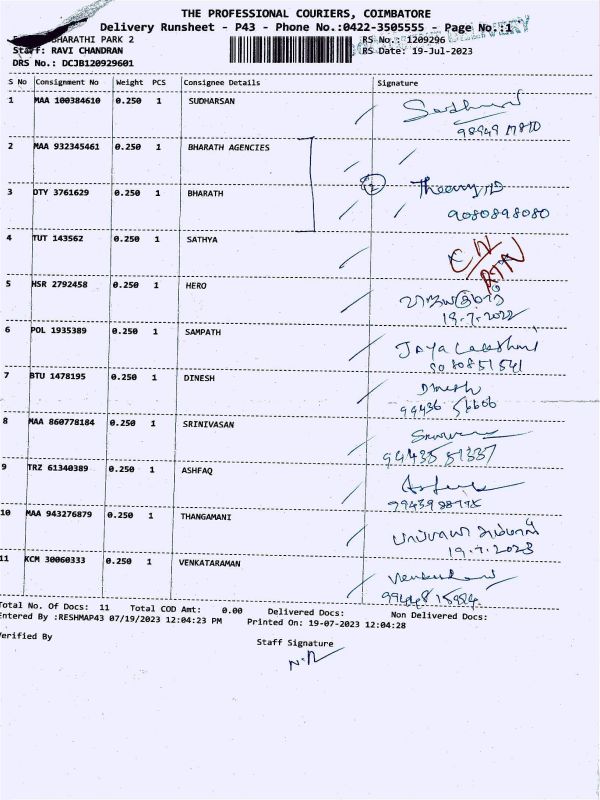 THE PROFESSIONAL COURIERS, COIMBATORE
Delivery Runsheet - P43 - Phone No.:0422-3505555 - Page No.:1
BHARATHI PARK 2
RS No.: 1209296
Staff: RAVI CHANDRAN
RS Date: 19-Jul-2023
DRS No.: DCJB120929601
S No Consignment No Weight PCS Consignee Details Signature
1 MAA 100384610 0.250 1 SUDHARSAN
2 MAA 932345461 0.250 1 BHARATH AGENCIES
3 DTY 3761629 0.250 1 BHARATH
9080898080
4 TUT 143562 0.250 1 SATHYA
5 HSR 2792458 0.250 1 HERO
19.7.2022
6 POL 1935389 0.250 1 SAMPATH
7 BTU 1478195 0.250 1 DINESH
Dinesh
99436 56606
8 MAA 860778184 0.250 1 SRINIVASAN
94435 51337
9 TRZ 61340389 0.250 1 ASHFAQ
10 MAA 943276879 0.250 1 THANGAMANI
19.7.2023
11 KCM 30060333 0.250 1 VENKATARAMAN
Total No. Of Docs: 11 Total COD Amt: 0.00 Delivered Docs: Non Delivered Docs:
Entered By :RESHMAP43 07/19/2023 12:04:23 PM Printed On: 19-07-2023 12:04:28
Verified By
Staff Signature